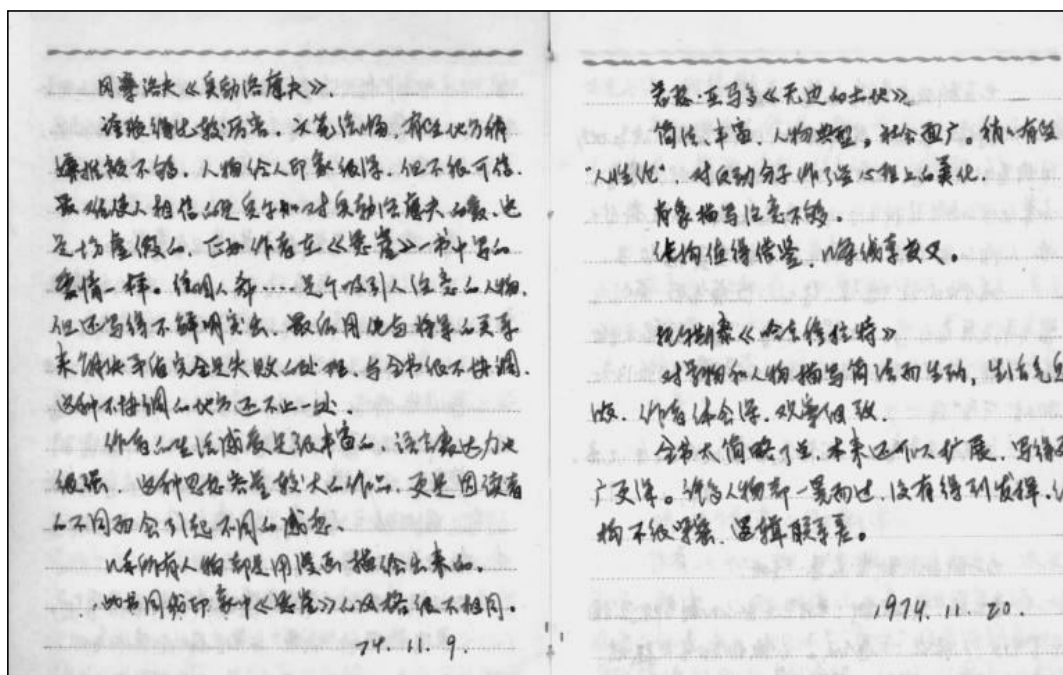 冈察洛夫《奥勃洛摩夫》
读后细比较厉害，不光流畅，有些地方稍
逻辑性不够，人物给人印象很深，但不很可信，
最难使人相信的是奥尔加对奥勃洛摩夫的爱，也
是十分虚假的，正如作者在《悬崖》一书中写的
爱情一样。佳周人都 是个吸引人注意的人物，
但还写得不鲜明突出。最后用他与将军的关系
来解决矛盾完全是失败的处理，与全书很不协调，
这种不协调的地方还不止一处。
作者的生活感受是很丰富的，语言表达力也
很强，这种思想容量较大的作品，更是因读者
的不同而会引起不同的感想。
几乎所有人物都是用漫画描绘出来的。
此书同我印象中《悬崖》的风格很不相同。
74. 11. 9.
若热·亚马多《无边的土地》
简洁、丰富，人物典型，社会面广。稍稍有些
“人性化”，对反动分子作了某些心理上的美化。
肖象描写注意不够
结构值得借鉴，几条线索交叉。
《哈泽穆拉特》
对景物和人物描写简洁而生动，生活气息
浓，作者体会深，观察细致。
全书太简略了些，本来还可以扩展，写得更
广更深。许多人物都一晃而过，没有得到发挥，结
构不很紧密，逻辑联系差。
1974. 11. 20.